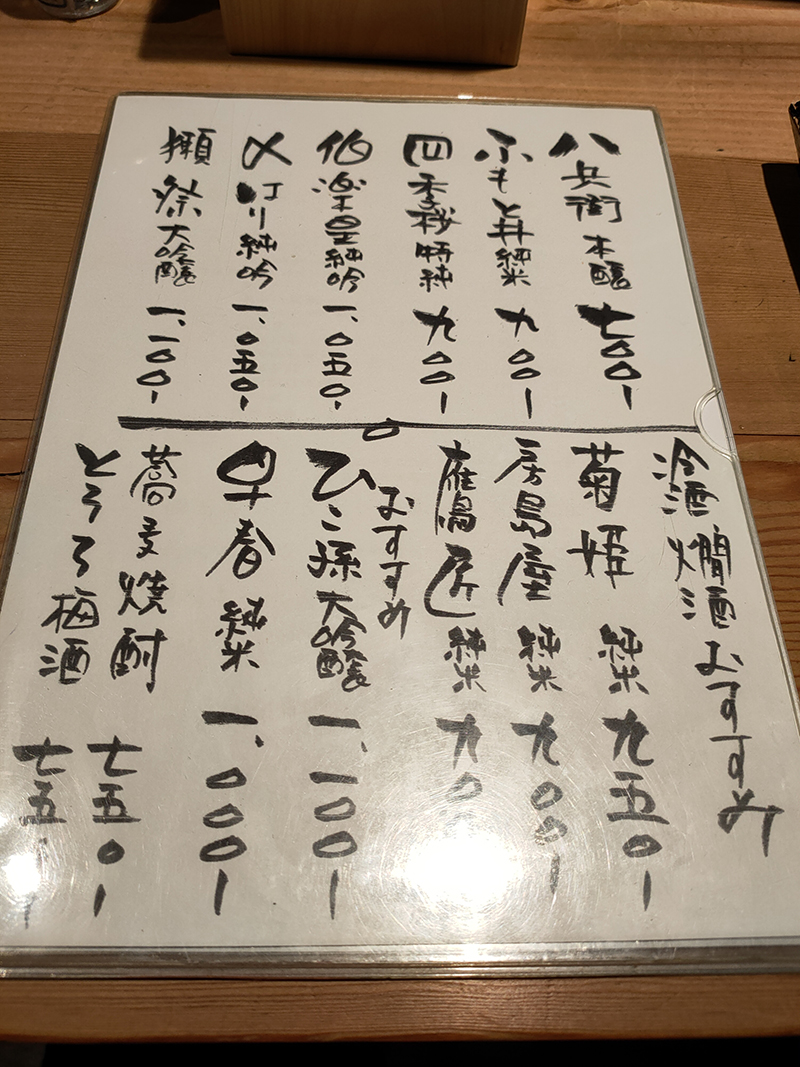 八兵衛 本醸 七〇〇-
ふもと井 純米 九〇〇-
四季桜 特純 九〇〇-
伯楽星 純吟 一、〇五〇-
〆はり 純吟 一、〇五〇-
獺祭 大吟醸 一、一〇〇-
冷酒 燗酒 おすすめ
菊姫 純米 九五〇-
房島屋 純米 九〇〇-
鷹匠 純米 九〇
おすすめ
ひこ孫 大吟醸 一、一〇〇-
早春 純米 一、〇〇〇-
蕎麦焼酎 七五〇-
とろろ梅酒 七五